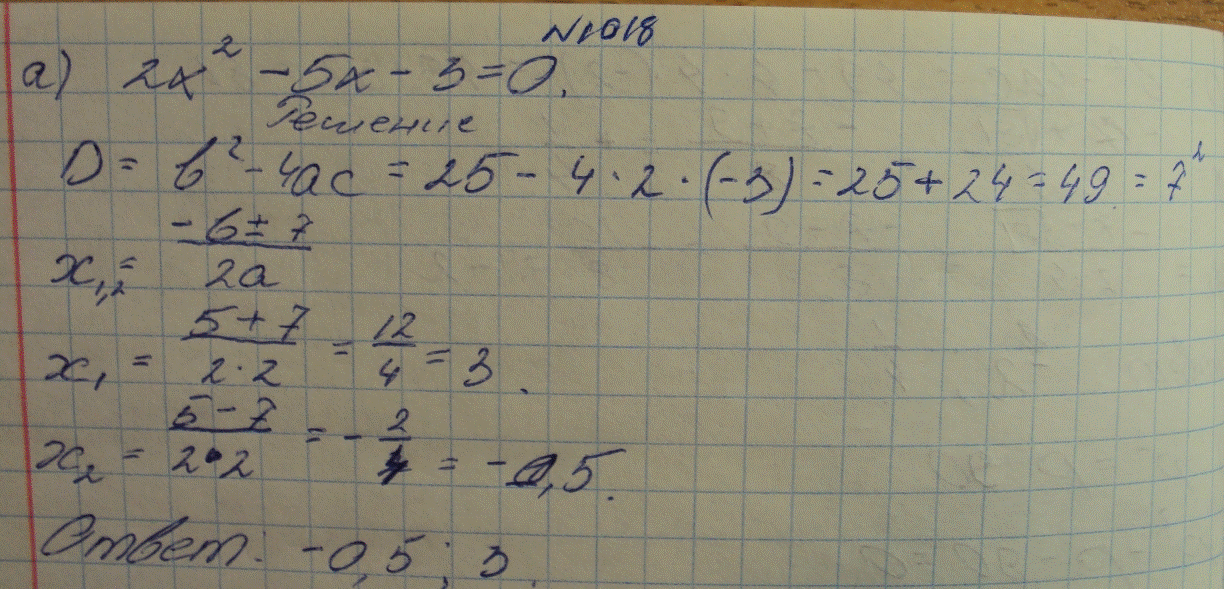 №1018
а) 2x² - 5x - 3 = 0.
Решение
D = b² - 4ac = 25 - 4 · 2 · (-3) = 25 + 24 = 49 = 7²
x₁,₂ = (-b ± 7) / 2a
x₁ = (5 + 7) / (2 · 2) = 12/4 = 3.
x₂ = (5 - 7) / (2 · 2) = - 2/4 = -0,5.
Ответ: -0,5; 3.